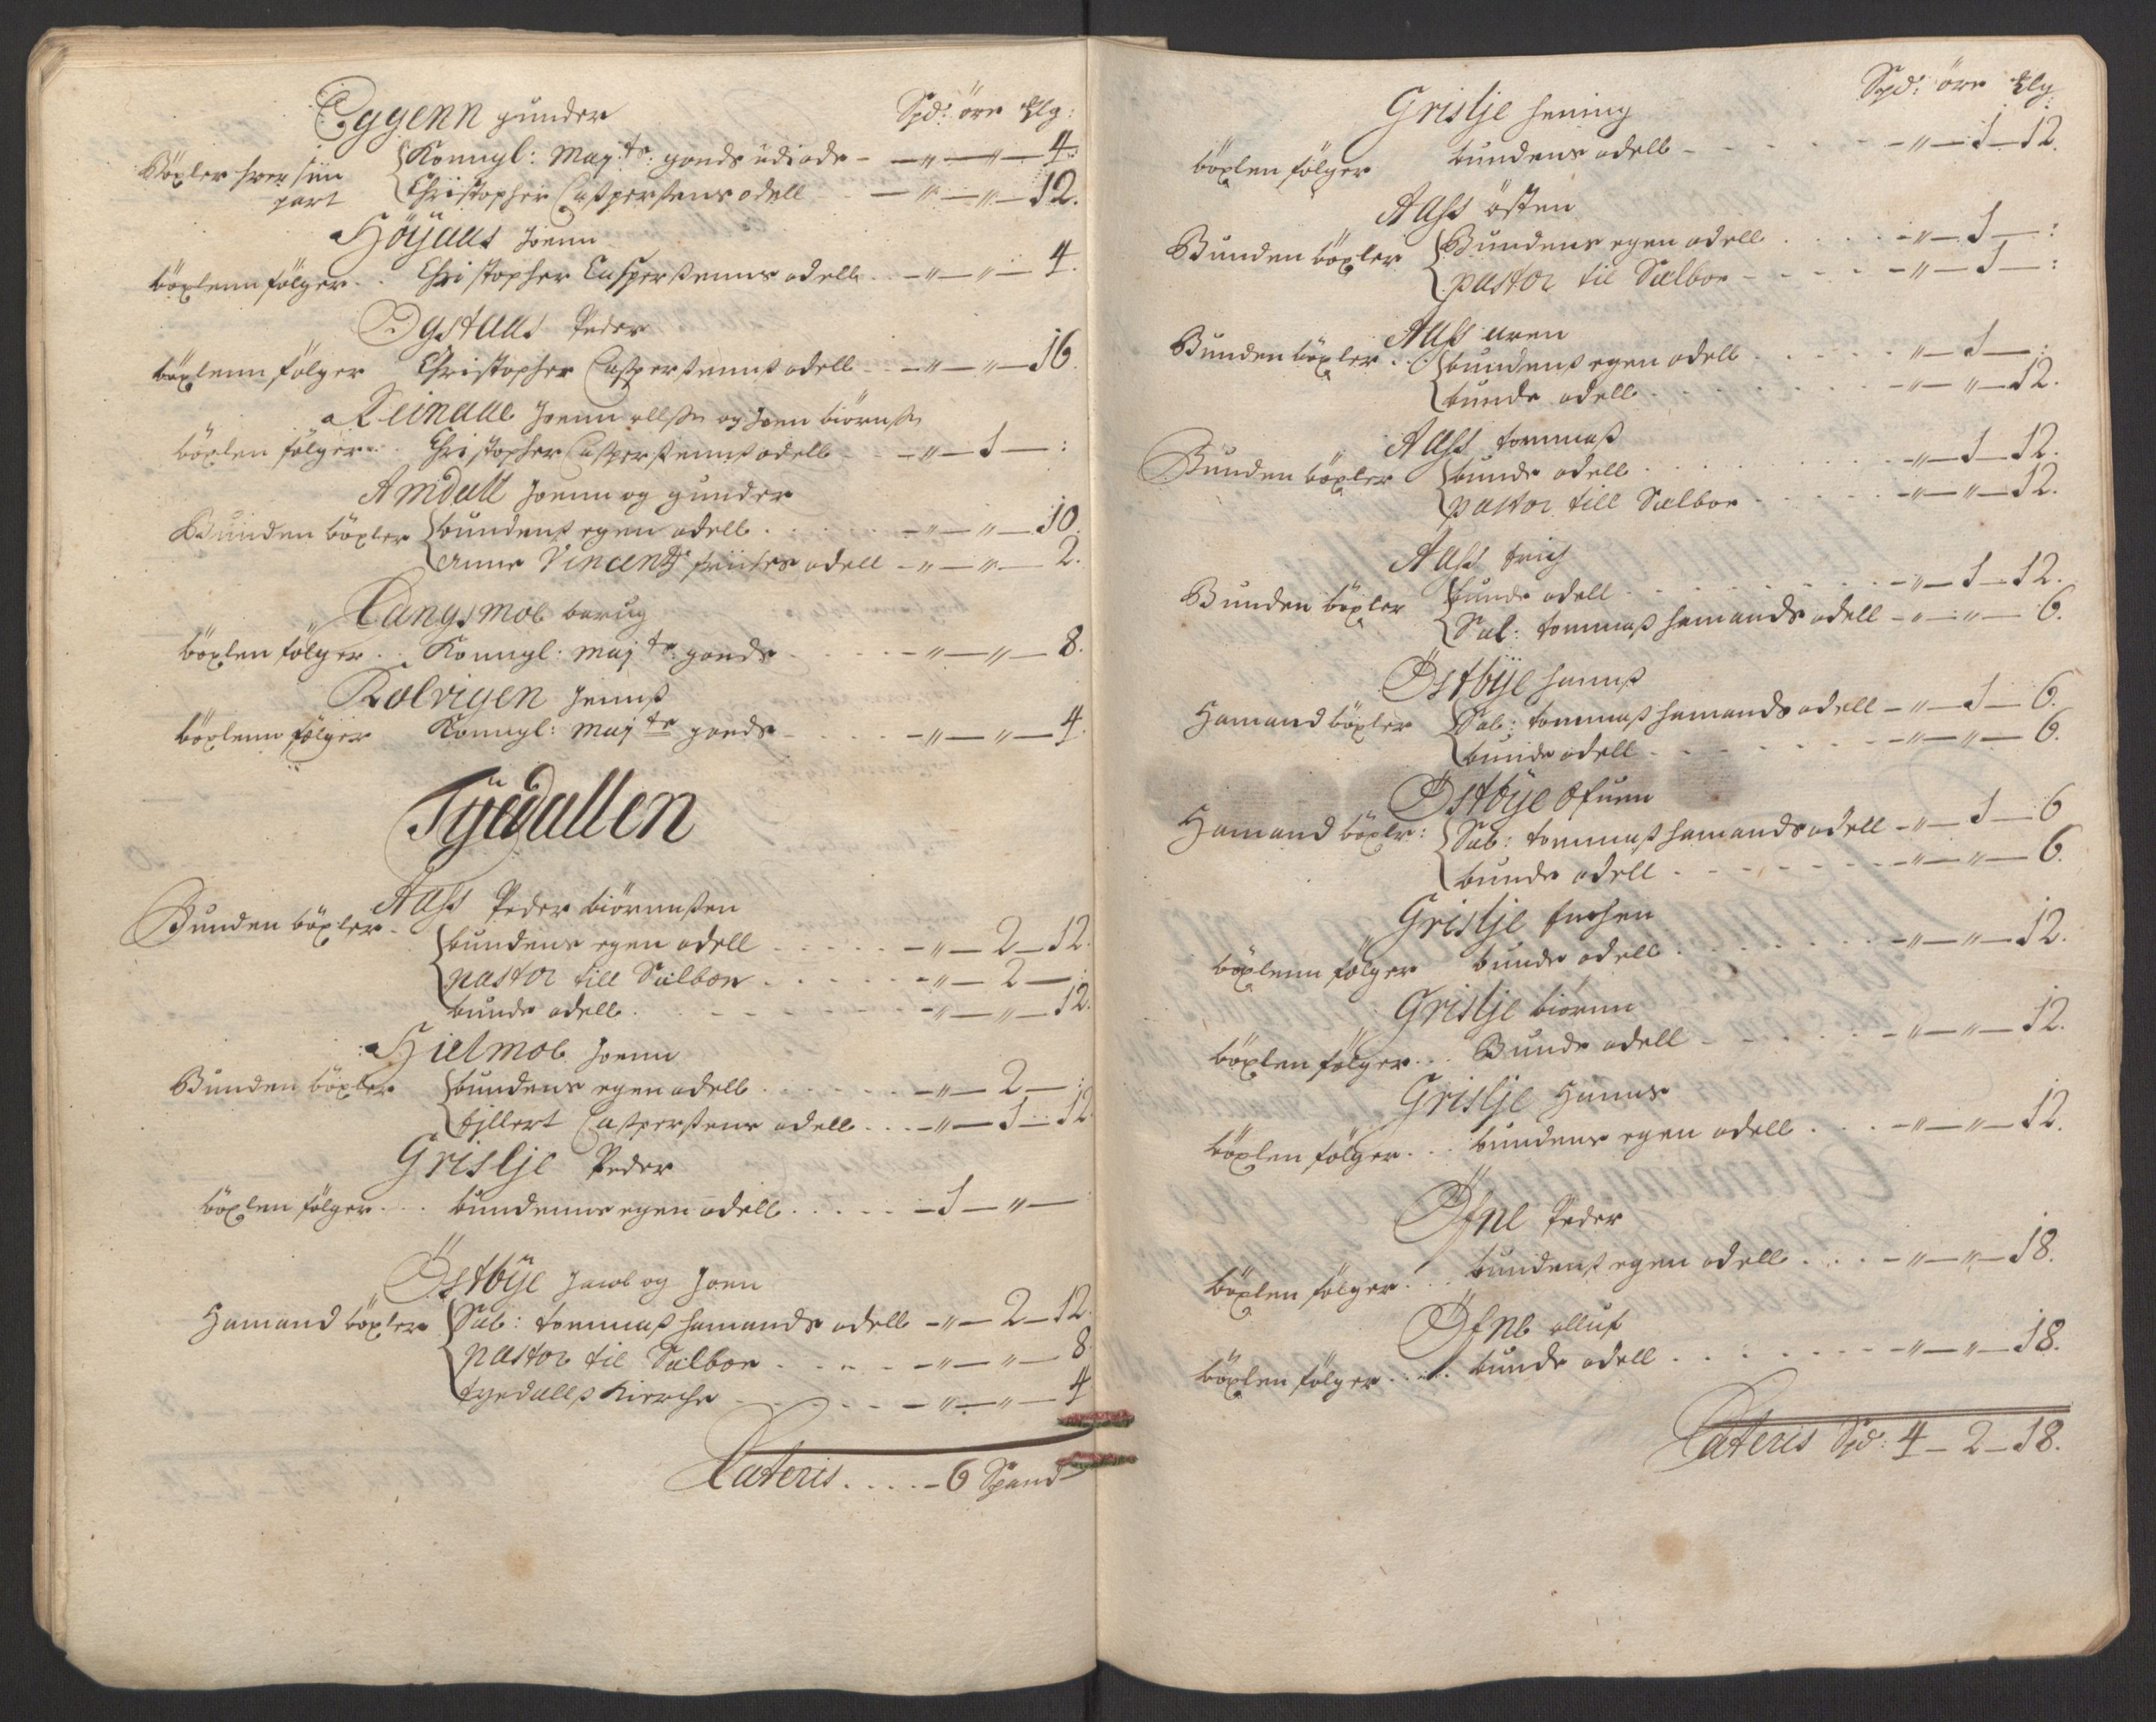 Eggenn gunder Spd: öre Mlg:
Böxler hver siin part
Konngl: May:ts: gonds udi ode - „ - „ - 4:
Christopher Caspersens odell - „ - „ - 12.
Höÿaas Joenn
böxlenn fölger . . Christopher Caspersenns odell - „ - „ - 4.
Ogstaas Peder
böxlenn fölger Christopher Caspersennß odell - „ - „ - 16.
Reinaae Joenn ollß og Joen biörnß
böxlen fölger . . Christopher Caspersennß odell - „ - 1 - :
Amdall Joenn og gunder
Bunden böxler bundenß egen odell . . . - „ - „ - 10.
Anne Vincentz odell - „ - „ - 2.
Langsmoe
böxlen fölger . . Konngl: Maj:ts gonds - „ - „ - 8.
Rolvigen Jennß
böxlenn fölger Konngl: Maj:ts gonds - „ - „ - 4.
Tÿedallen
Aass Peder biörnnßen
Bunden böxler
bundens egen odell . . . - „ - 2 - 12.
pastor till Sælboe . . . - „ - 2 - :
bunde odell . - „ - „ - 12.
Hielmoe Joenn
Bunden böxler bundens egen odell . . - „ - 2 - :
Eillert Caspersens odell . . . - „ - 1 - 12
Grislje Peder
böxlen fölger . . . bundenns egen odell . . . . - 1 - „ -
Östbÿe Jacob og Joen
Hamand böxler Sal: tommaß hamands odell - „ - 2 - 12.
pastor til Sælboe . . . - „ - „ - 8.
tyedallß Kierche - „ - „ - 4
Lateris . . . . - 6 Spand
Spd: öre Mlg
Grislje hening
böxlen fölger bundens odell - - - „ - 1 - 12.
Aass östen
Bunden böxler Bundens egen odell . . . . - „ - 1 - :
pastor til Sælboe - - - - „ - 1 - :
Aass aren
Bunden böxler . . bundenß egen odell . . . „ - 1 - :
bunde odell . . . - „ - „ - 12.
Aass tommaß
Bunden böxler bunde odell . . . . - „ - 1 - 12.
pastor till Sælboe . . . - „ - „ - 12.
Aass
Bunden böxler bunde odell . . . - „ - 1 - 12.
Sal: tommaß hamands odell - „ - „ - 6.
Östbÿe hannß
Hamand böxler Sal: tommaß hamands odell - „ - 1 - 6.
bunde odell - - - „ - „ - 6.
Östbÿe Ofuenn
Hamand böxler: Sal: tommaß hamands odell - „ - 1 - 6
bunde odell . . . - „ - „ - 6.
Grislje
böxlenn fölger bunde odell . . . - „ - „ - 12.
Grislje biörnn
böxlen fölger . . . Bunde odell - - . - „ - „ - 12.
Grislje Hanns
böxlen fölger . . . bundens egen odell . . . - „ - „ - 12.
Öfne Peder
böxlen fölger . . . bundenß egen odell . . . - „ - „ - 18.
Öfne olluf
böxlen fölger . . . . bunde odell . . . - - „ - „ - 18.
Lateris Spd: 4 - 2 - 18.